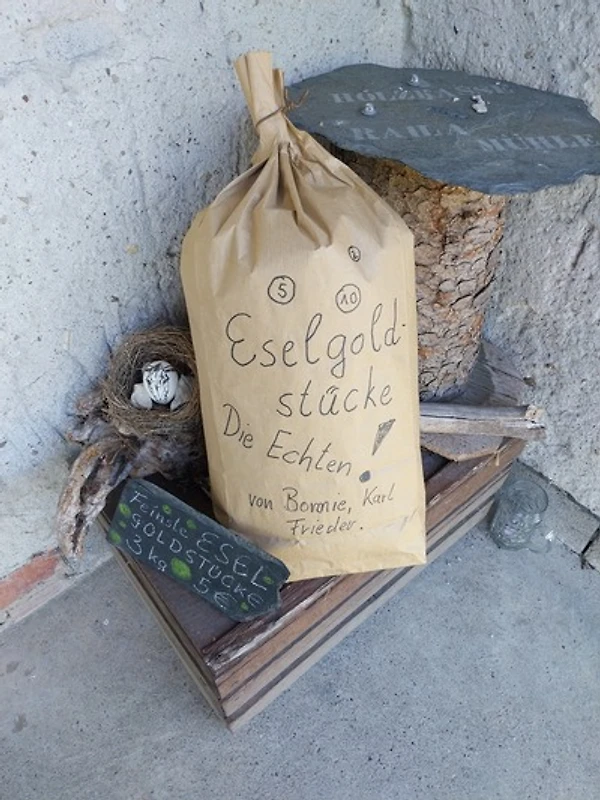 HOLZGASSE
RAILA MÜHLE
2
5
10
Eselgold-
stücke
Die Echten!
von Bonnie, Karl
Frieder.
Feinste ESEL
GOLDSTÜCKE
3 kg 5€